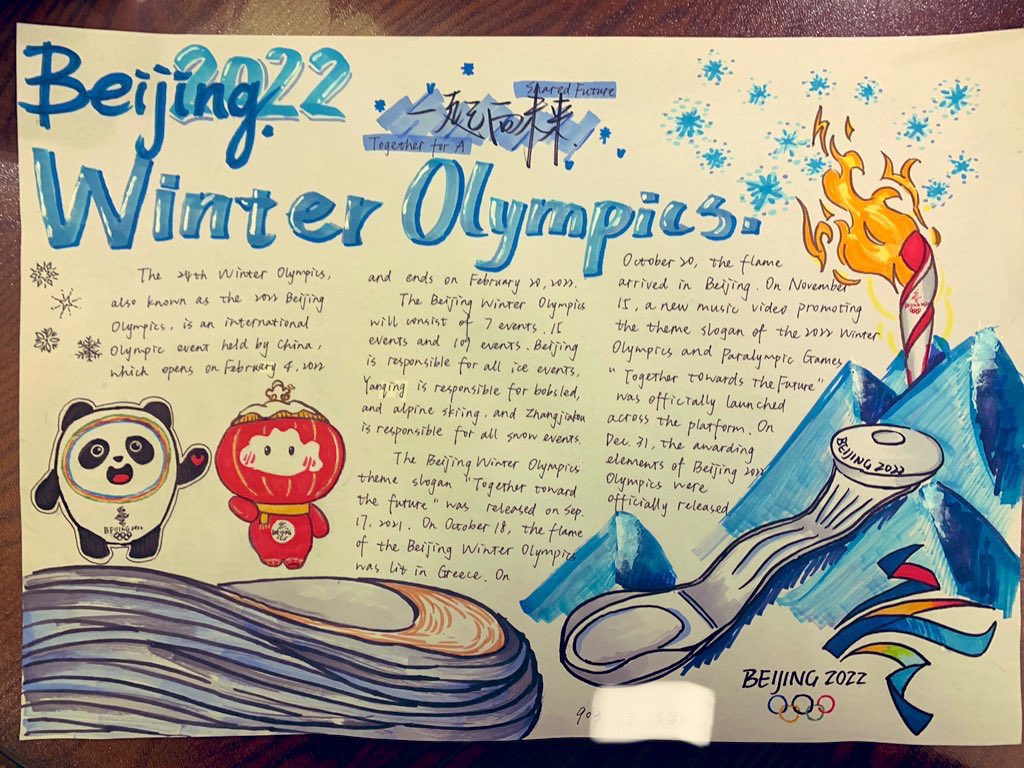 Beijing 2022
Shared Future
一起向未来
Together for A
Winter Olympics.
The 24th Winter Olympics,
also known as the 2022 Beijing
Olympics, is an international
Olympic event held by China,
which opens on February 4, 2022
and ends on February 20, 2022.
The Beijing Winter Olympics
will consist of 7 events, 15
events and 109 events. Beijing
is responsible for all ice events,
Yanqing is responsible for bobsled,
and alpine skiing, and Zhangjiakou
is responsible for all snow events.
The Beijing Winter Olympics
theme slogan "Together toward
the future" was released on Sep.
17, 2021. On October 18, the flame
of the Beijing Winter Olympics
was lit in Greece. On
October 20, the flame
arrived in Beijing. On November
15, a new music video promoting
the theme slogan of the 2022 Winter
Olympics and Paralympic Games
"Together towards the Future"
was officially launched
across the platform. On
Dec. 31, the awarding
elements of Beijing 2022
Olympics were
officially released
BEIJING 2022
BEIJING 2022
BEIJING 2022